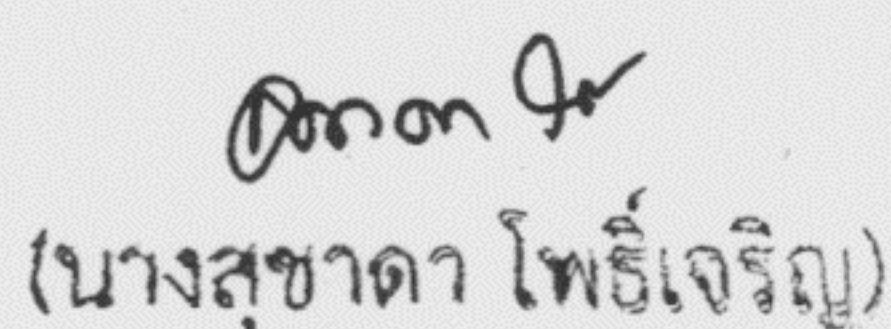 (นางสุชาดา โพธิ์เจริญ)